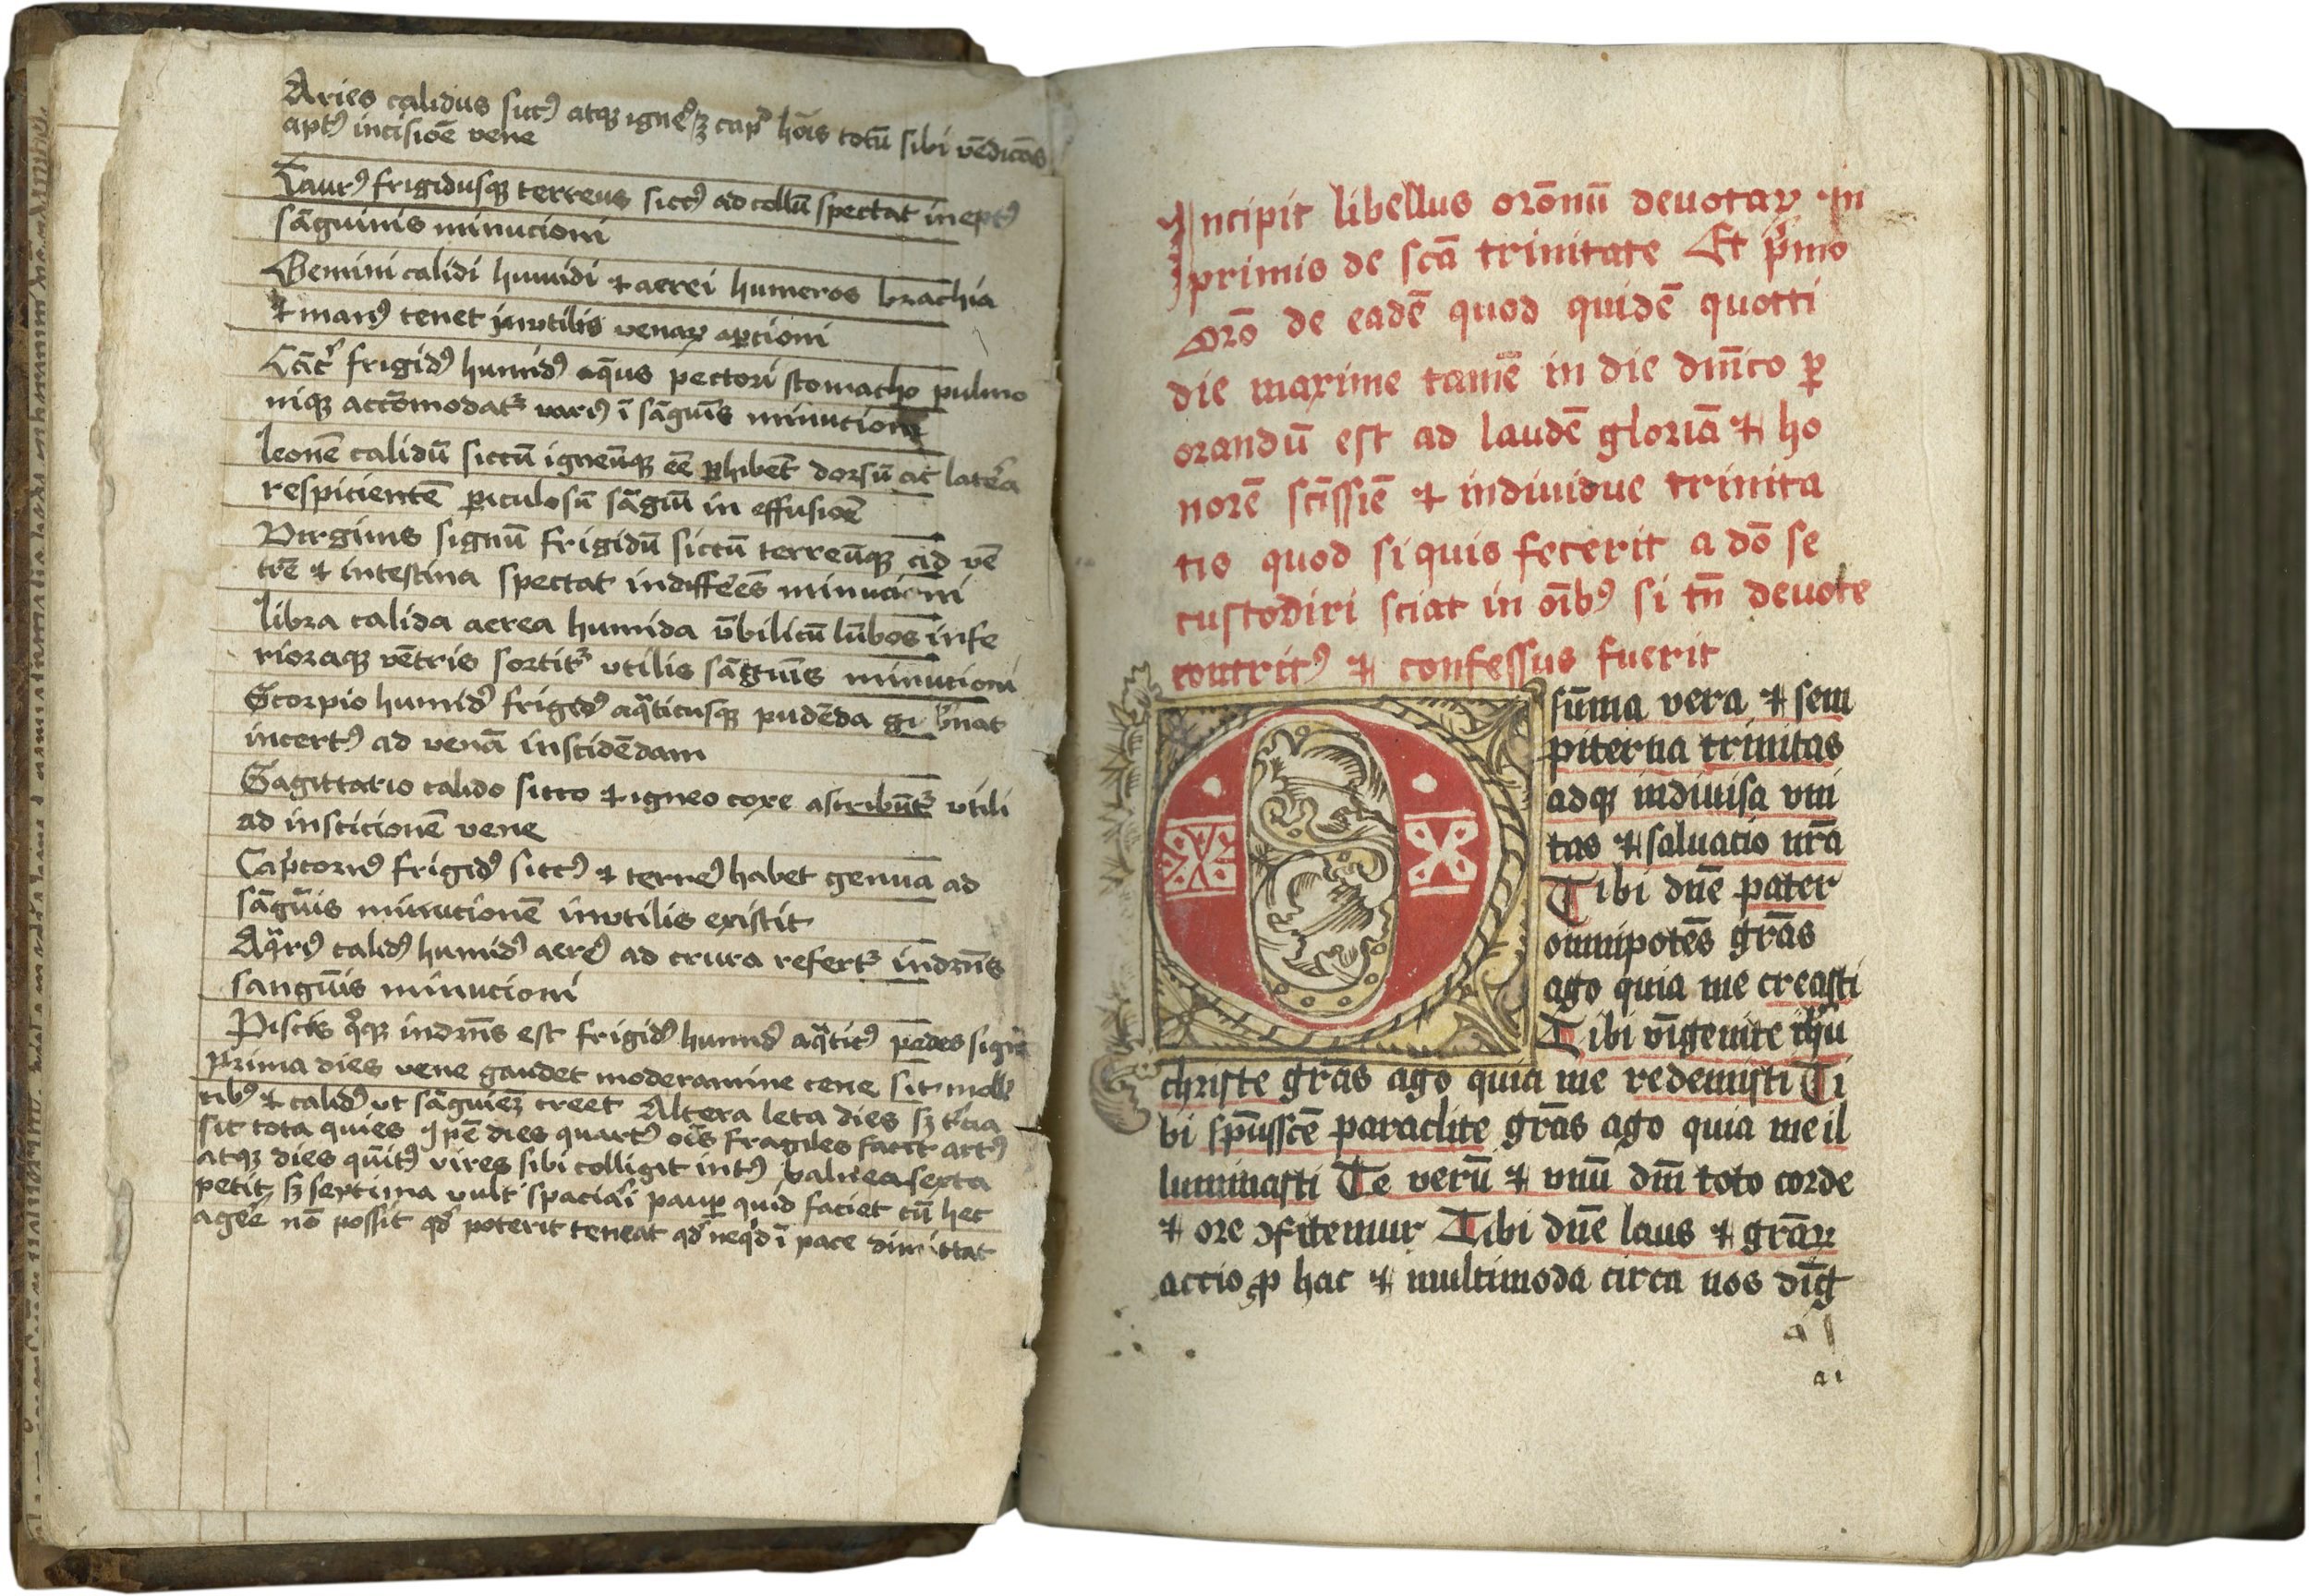 Aries calidus siccꝰ atqꝫ igneꝰ sꝫ capꝰ hoīs totū sibi vēdicās
aptꝰ incisiōe vene
Taurꝰ frigidusqꝫ terreus siccꝰ ad collū spectat ineptꝰ
sāguinis minucioni
Gemini calidi humidi ⁊ aerei humeros brachia
⁊ manꝰ tenet inutilis venaꝝ aꝑtioni
Cācꝰ frigidꝰ humidꝰ aq̄us pectori stomacho pulmo
niqꝫ accōmodatꝰ varꝰ ī sāguīs minutione
Leonē calidū siccū igneūqꝫ eē ꝑhibēt dorsū ac latēa
respicientē ꝑiculosū sāguī in effusiōe
Virginis signū frigidū siccū terreūqꝫ ad vē
trē ⁊ intestina spectat indifferēs minucioni
Libra calida aerea humida v̄bilicū lūbos infe
rioraqꝫ vētris sortitꝰ vtilis sāguīs minutioni
Scorpio humidꝰ frigidꝰ aq̄ticusqꝫ pudēda gubnat
incertꝰ ad venā inscidēdam
Sagittario calido sicco ⁊ igneo coxe ascribūtꝰ vtili
ad inscicionē vene
Capcornꝰ frigidꝰ siccꝰ ⁊ terreꝰ habet genua ad
sāguīs minucionē inutilis existit
Aq̄rꝰ calidꝰ humidꝰ aereꝰ ad crura refertꝰ indrn̄s
sanguīs minucioni
Piscis qͦqꝫ indrn̄s est frigidꝰ humidꝰ aq̄ticꝰ pedes signās
Prima dies vene gaudet moderamine cene sit moll
ribꝰ ⁊ calidꝰ ut sāguiēꝫ creet Altera leta dies sꝫ tcia
sit tota quies qͥ pē dies quartꝰ oīs fragiles facit artꝰ
atqꝫ dies quītꝰ vires sibi colligit intꝰ balnea sexta
petit sꝫ septima vult spaciari pauꝑ quid faciet cū hec
agēe nō possit qd poterit teneat qd neqͥd ī pace dimittat
Incipit libellus orōnū deuotaꝝ In
primis de scā trinitate Et pͥmo
Orō de eadē quod quidē quotti
die maxime tamē in die dn̄ico ꝑ
orandū est ad laudē gloriā ⁊ ho
norē sc̄issiē ⁊ indiuidue trinita
tis quod si quis fecerit a dō se
custodiri sciat in oībꝰ si tn̄ deuote
contritꝰ ⁊ confessus fuerit
O sūma vera ⁊ sem
piterna trinitas
adqꝫ indiuisa vni
tas ⁊ saluacio nr̄a
Tibi dn̄e pater
omnipotēs gr̄as
ago quia me creasti
Tibi vn̄igenite ihū
christe gr̄as ago quia me redemisti Ti
bi sp̄ussc̄e paraclite gr̄as ago quia me il
luminasti Te verū ⁊ vnū dm̄ toto corde
⁊ ore ↄfitemur Tibi dn̄e laus ⁊ gr̄aꝝ
actio ꝓ hac ⁊ multimoda circa nos dīg
a1